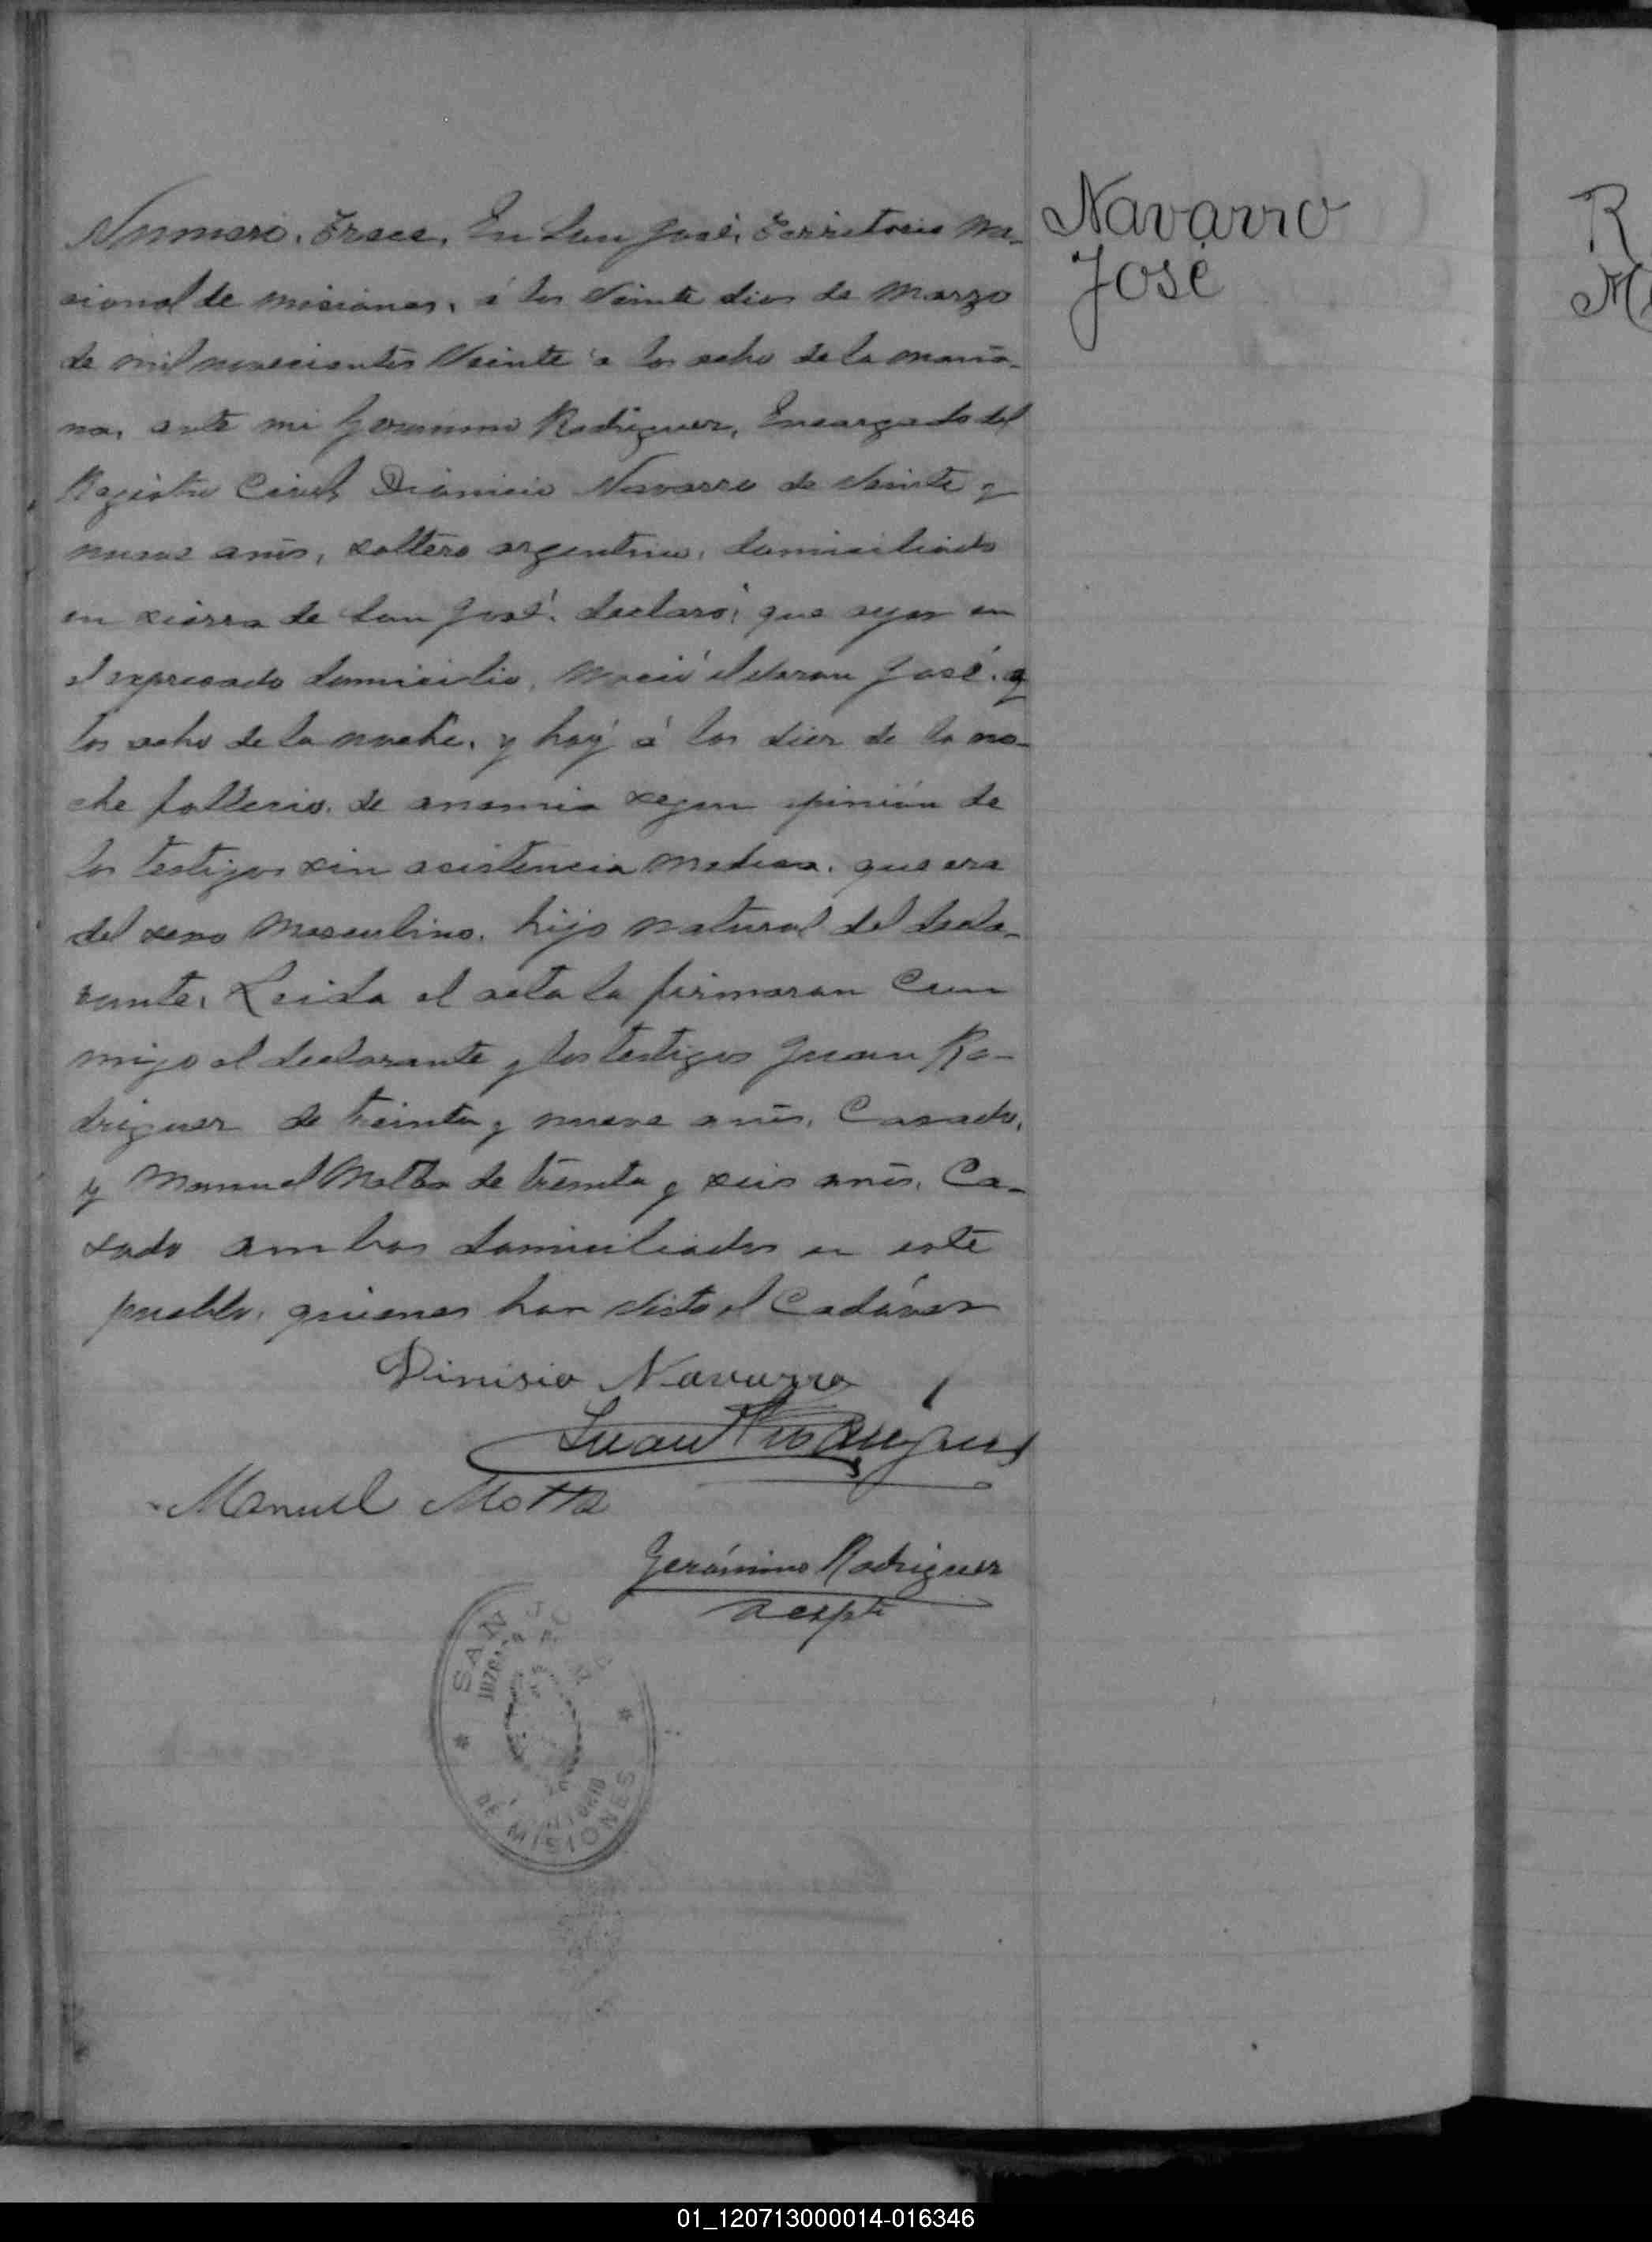 Navarro
José
Numero. Trece. En San José, Territorio Na-
cional de Misiones, á los Veinte dias de Marzo
de mil novecientos Veinte á las ocho de la maña-
na, ante mi Geronimo Rodriguez, Encargado del
Registro Civil, Dionicio Navarro de Veinte y
nueve años, soltero argentino, domiciliado
en sierra de San José. declaró; que ayer en
el expresado domicilio, Nació el varon José. a
las ocho de la noche, y hoy á las diez de la no-
che fallecio. de anemia segun opinión de
los testigos sin asistencia medica. que era
del sexo Masculino. hijo natural del decla-
rante. Leida el acta la firmaron Con
migo el declarante y los testigos Juan Ro-
driguez de treinta y nueve años, Casado,
y Manuel Motta de treinta y seis años, Ca-
sado ambos domiciliados en este
pueblo, quienes han visto el Cadáver
Dinisio Navarro
Juan Rodriguez
Manuel Motta
Gerónimo Rodriguez
SAN JOSE
DE MISIONES
R
M
01_120713000014-016346